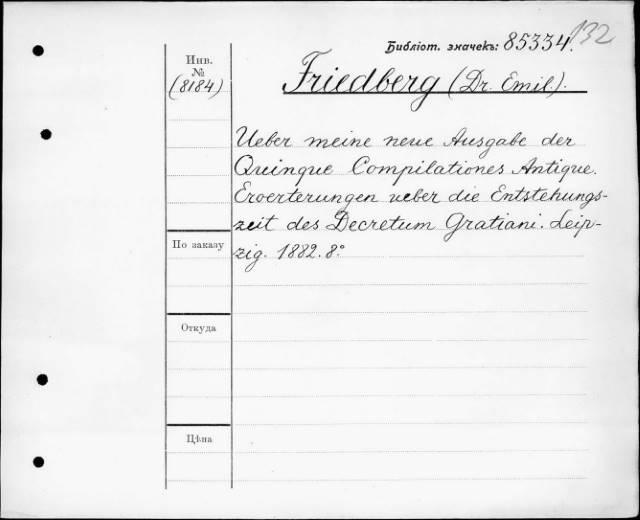 Библіот. значекъ: 85334. 132
Инв.
№
(8184)
Friedberg (Dr. Emil).
Ueber meine neue Ausgabe der
Quinque Compilationes Antique.
Eroerterungen ueber die Entstehungs-
zeit des Decretum Gratiani. Leip-
zig. 1882. 8°.
По заказу
Откуда
Цѣна